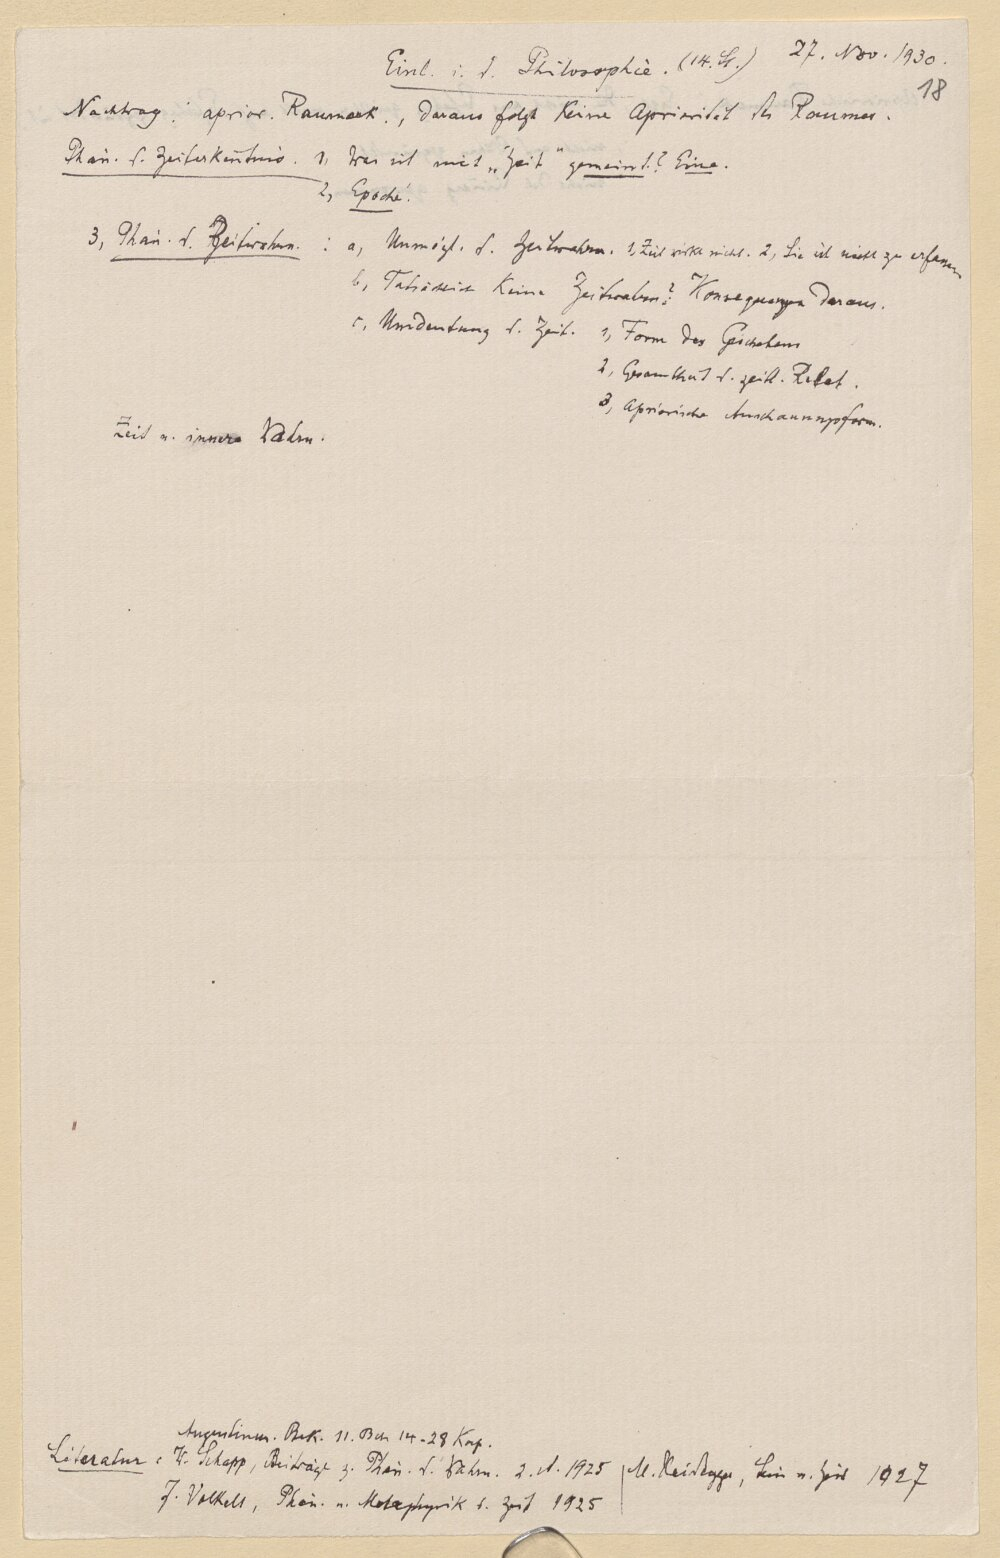 Einl. i. d. Philosophie. (14. St.) 27. Nov. 1930.
18
Nachtrag: aprior. Raumerk., daraus folgt keine Apriorität des Raumes.
Phän. d. Zeiterkenntnis. 1, Was ist mit „Zeit" gemeint? Eine.
2, Epoché.
3, Phän. d. Zeitwahrn.: a, Unmögl. d. Zeitwahrn. 1, Zeit wirkt nicht. 2, Sie ist nicht zu erfassen
b, Tatsächlich keine Zeitwahrn? Konsequenzen daraus.
c, Umdeutung d. Zeit. 1, Form des Geschehens
2, Gesamtheit d. zeitl. Relat.
3, Apriorische Anschauungsform.
Zeit u. innere Wahrn.
Augustinus. Bek. 11. Buch 14-28 Kap.
Literatur: W. Schapp, Beiträge z. Phän. d. Wahrn. 2. A. 1925 M. Heidegger, Sein u. Zeit 1927
J. Volkelt, Phän. u. Metaphysik d. Zeit 1925